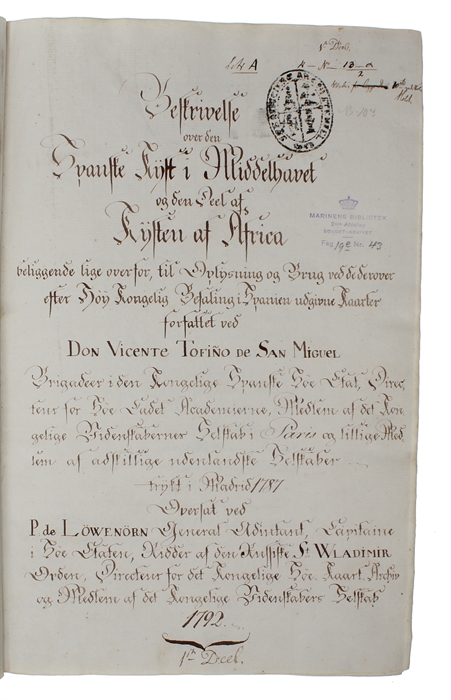 1ste Deel.
Litr A
K-No 13-a
2
MARINENS BIBLIOTEK
SØKORT-ARKIVET
Fag 19E No. 43
Beskrivelse
over den
Spanske Kyst i Middelhavet
og den Deel af
Kysten af Africa
beliggende lige overfor, til Oplysning og Brug ved de derover
efter Høy Kongelig Befaling i Spanien udgivne Kaarter
forfattet ved
DON VICENTE TOFIÑO DE SAN MIGUEL
Brigadeer i den Kongelige Spanske Søe Etat, Direc-
teur for Søe Cadet Academierne, Medlem af det Kon-
gelige Videnskabernes Selskab i Paris og tillige Med-
lem af adskillige udenlandske Selskaber
trykt i Madrid 1787
Oversat ved
P. de LÖWENÖRN General Adjutant, Capitaine
i Søe Etaten, Ridder af den Russiske St. WLADIMIR
Orden, Directeur for det Kongelige Søe-Kaart-Archiv
og Medlem af det Kongelige Videnskabers Selskab
1792.
1ste Deel.